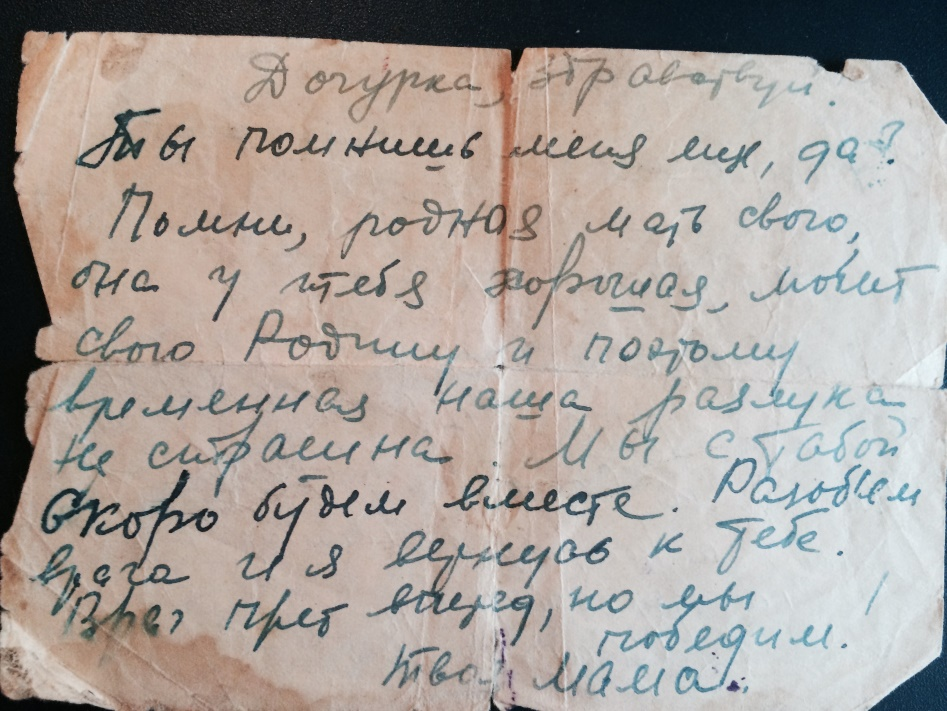 Дочурка, здравствуй!
Ты помнишь меня еще, да?
Помни, родная мать свою,
она у тебя хорошая, любит
свою Родину и поэтому
временная наша разлука
не страшна. Мы с табой
Скоро будем вместе. Разобьем
врага и я вернусь к тебе.
Враг прет вперед, но мы
победим!
Твоя мама.